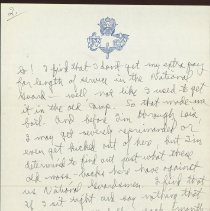 2.
so! I find that I don't get my extra pay
for length of service in the National
Guard. Well not like I used to get
it in the old Corp. So that makes me
boil. And before I'm through Lois,
I may get severely reprimanded or
even get kicked out of here but I'm
determined to find out just what these
old moss-backs have have against
us National Guardsmen. I find that
if I sit right and say nothing that